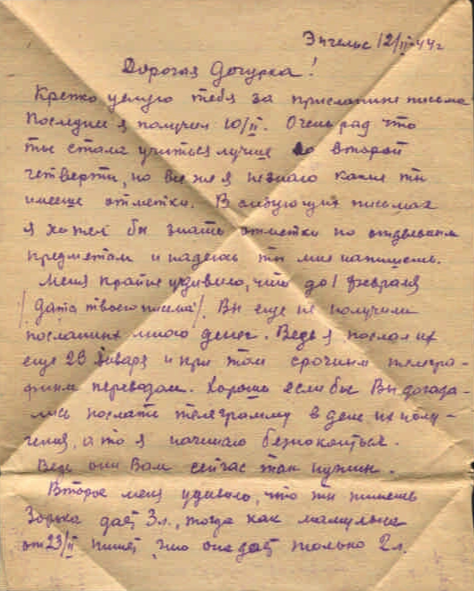 Энгельс 12/II-44г
Дорогая Дочурка!
Крепко целую тебя за присланные письма
Последнее я получил 10/II. Очень рад что
ты стала учиться лучше во второй
четверти, но все же я не знаю какие ты
имееш отметки. В следующих письмах
я хотел бы знать отметки по отдельным
предметам и надеюсь ты мне напишешь.
Меня крайне удивило, что до 1 февраля
/дата твоего письма/. Вы еще не получили
посланных мною денег. Ведь я послал их
еще 23 января и при том срочным телегра-
фным переводом. Хорошо если бы Вы догада-
лись послать телеграмму в день их полу-
чения, а то я начинаю безпокоиться.
Ведь они Вам сейчас так нужны.
Второе меня удивило, что ты пишешь
Зорька дает 3л., тогда как мамулька
от 23/II пишет, что она дает только 2л.